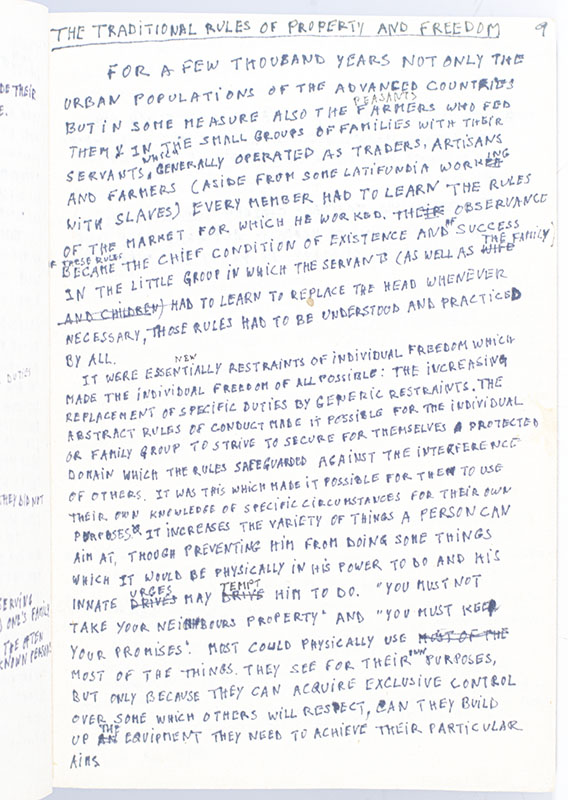 THE TRADITIONAL RULES OF PROPERTY AND FREEDOM 9
FOR A FEW THOUSAND YEARS NOT ONLY THE
URBAN POPULATIONS OF THE ADVANCED COUNTRIES
PEASANTS
BUT IN SOME MEASURE ALSO THE FARMERS WHO FED
THEM & IN THE SMALL GROUPS OF FAMILIES WITH THEIR
WHICH
SERVANTS, GENERALLY OPERATED AS TRADERS, ARTISANS
AND FARMERS (ASIDE FROM SOME LATIFUNDIA WORKING
WITH SLAVES) EVERY MEMBER HAD TO LEARN THE RULES
OF THE MARKET FOR WHICH HE WORKED. THEIR OBSERVANCE
OF THESE RULES OF
BECAME THE CHIEF CONDITION OF EXISTENCE AND SUCCESS
THE FAMILY)
IN THE LITTLE GROUP IN WHICH THE SERVANTS (AS WELL AS WIFE
AND CHILDREN) HAD TO LEARN TO REPLACE THE HEAD WHENEVER
NECESSARY, THOSE RULES HAD TO BE UNDERSTOOD AND PRACTICED
BY ALL.
NEW
IT WERE ESSENTIALLY RESTRAINTS OF INDIVIDUAL FREEDOM WHICH
MADE THE INDIVIDUAL FREEDOM OF ALL POSSIBLE: THE INCREASING
REPLACEMENT OF SPECIFIC DUTIES BY GENERIC RESTRAINTS. THE
ABSTRACT RULES OF CONDUCT MADE IT POSSIBLE FOR THE INDIVIDUAL
OR FAMILY GROUP TO STRIVE TO SECURE FOR THEMSELVES A PROTECTED
DOMAIN WHICH THE RULES SAFEGUARDED AGAINST THE INTERFERENCE
OF OTHERS. IT WAS THIS WHICH MADE IT POSSIBLE FOR THEM TO USE
THEIR OWN KNOWLEDGE OF SPECIFIC CIRCUMSTANCES FOR THEIR OWN
PURPOSES. IT INCREASES THE VARIETY OF THINGS A PERSON CAN
AIM AT, THOUGH PREVENTING HIM FROM DOING SOME THINGS
WHICH IT WOULD BE PHYSICALLY IN HIS POWER TO DO AND HIS
URGES TEMPT
INNATE DRIVES MAY DRIVE HIM TO DO. "YOU MUST NOT
TAKE YOUR NEIGHBOURS PROPERTY" AND "YOU MUST KEEP
YOUR PROMISES". MOST COULD PHYSICALLY USE MOST OF THE
OWN
MOST OF THE THINGS. THEY SEE FOR THEIR PURPOSES,
BUT ONLY BECAUSE THEY CAN ACQUIRE EXCLUSIVE CONTROL
OVER SOME WHICH OTHERS WILL RESPECT, CAN THEY BUILD
THE
UP AN EQUIPMENT THEY NEED TO ACHIEVE THEIR PARTICULAR
AIMS
THEIR
DUTIES
THEY DID NOT
SERVING
ONE'S FAMILY
THE OFTEN
KNOWN PERSONS